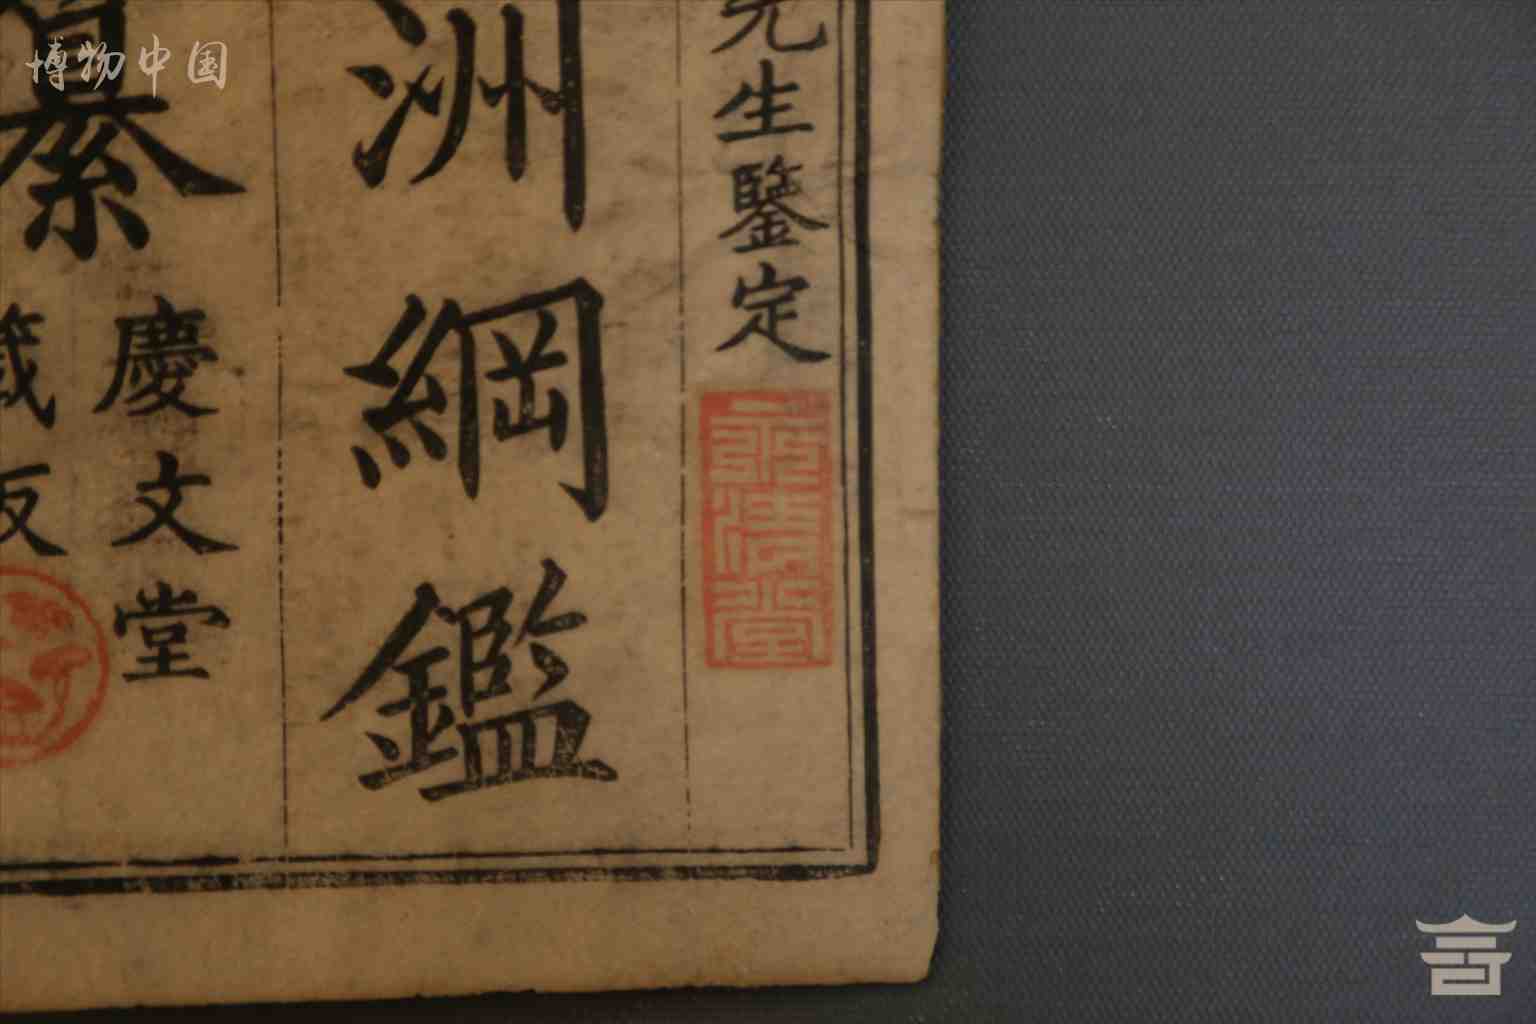 博物中国
先生鑒定
洲綱鑑
纂
慶文堂
藏板